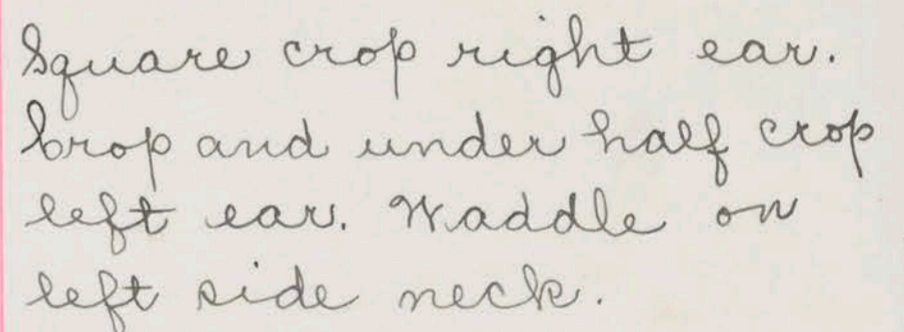 Square crop right ear.
Crop and under half crop
left ear. Waddle on
left side neck.